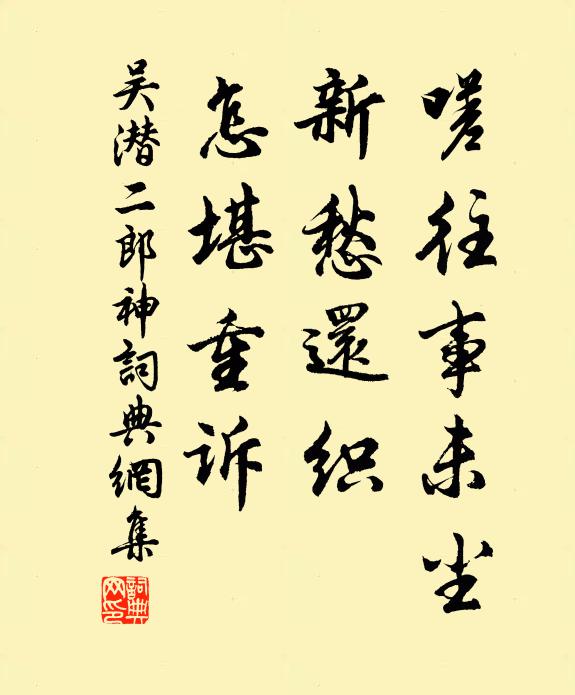 嗟往事未尘
新愁還织
怎堪重诉
吴潜二郎神詞典網集
詞典网印